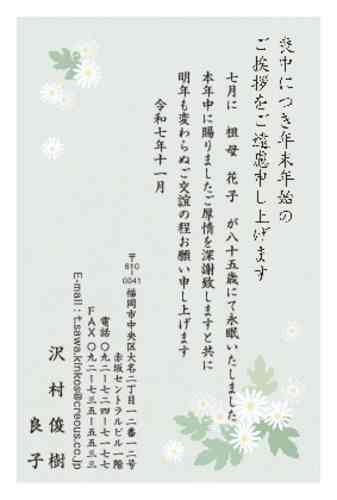 喪中につき年末年始の
ご挨拶をご遠慮申し上げます
七月に 祖母 花子 が八十五歳にて永眠いたしました
本年中に賜りましたご厚情を深謝致しますと共に
明年も変わらぬご交誼の程お願い申し上げます
令和七年十一月
〒810-0041 福岡市中央区大名二丁目一二番一二号
赤坂セントラルビル一階
電話 〇九二ー七二四ー七一七七
FAX 〇九二ー七三五ー五五三三
E-mail : t.sawa.kinkos@creous.co.jp
沢村 俊樹
良子